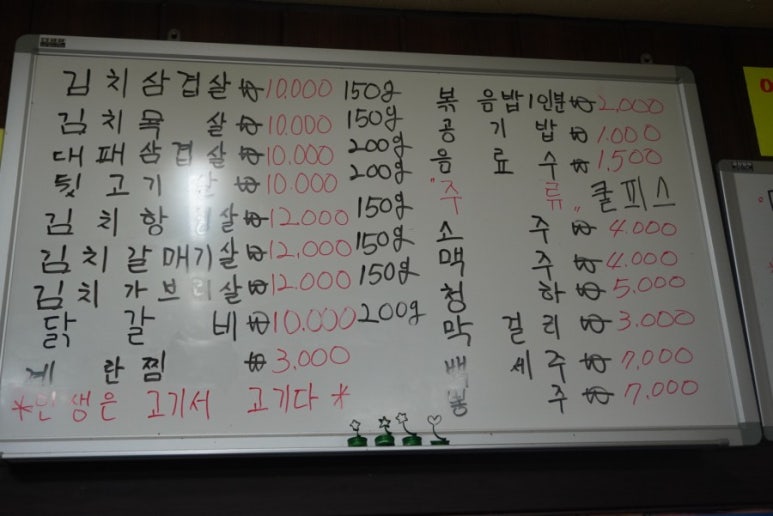 김치삼겹살 ₩10,000 150g
김치목살 ₩10,000 150g
대패삼겹살 ₩10,000 200g
뒷고기 ₩10,000 200g
김치항 살 ₩12,000 150g
김치갈매기살 ₩12,000 150g
김치가브리살 ₩12,000 150g
닭갈비 ₩10,000 200g
계란찜 ₩3,000
*인생은 고기서 고기다*
볶음밥 1인분 ₩2,000
공기밥 ₩1,000
음료수 ₩1,500
"주류" 쿨피스
소주 ₩4,000
맥주 ₩4,000
청하 ₩5,000
막걸리 ₩3,000
백세주 ₩7,000
주 ₩7,000